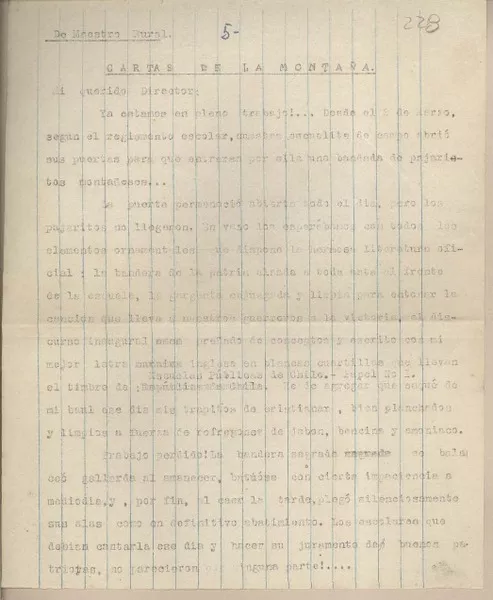 De Maestro Rural. 5- 228
CARTAS DE LA MONTAÑA.
Mi querido Director:
Ya estamos en pleno trabajo!... Desde el de Marzo,
según el reglamento escolar, nuestra escuelita de campo abrió
sus puertas para que entraran por ella una bandada de pajari-
tos montañeses...
La puerta permaneció abierta todo el día, pero los
pajaritos no llegaron. En vano los esperábamos con todos los
elementos ornamentales que dispone la hermosa literatura ofi-
cial: la bandera de la patria alzada a toda asta al frente
de la escuela, la garganta enjuagada y limpia para entonar la
canción que lleva a nuestros guerreros a la victoria, el dis-
curso inaugural preñado de conceptos y escrito con mi
mejor letra inglesa en blancas cuartillas que llevan
Escuelas Públicas de Chile.- Papel No 2.
el timbre de :República de Chile. He de agregar que saqué de
mi baul ese día mis trapitos de cristianar, bien planchados
y limpios a fuerza de refregones de jabon, bencina y amoniaco.
Trabajo perdido! La bandera sagrada se balan
ceó gallarda al amanecer, batióse con cierta impaciencia a
mediodía, y, por fin, al caer la tarde, plegó silenciosamente
sus alas como en definitivo abatimiento. Los escolares que
debían cantarla ese día y hacer su juramento de buenos pa-
triotas, no parecieron por ninguna parte!....